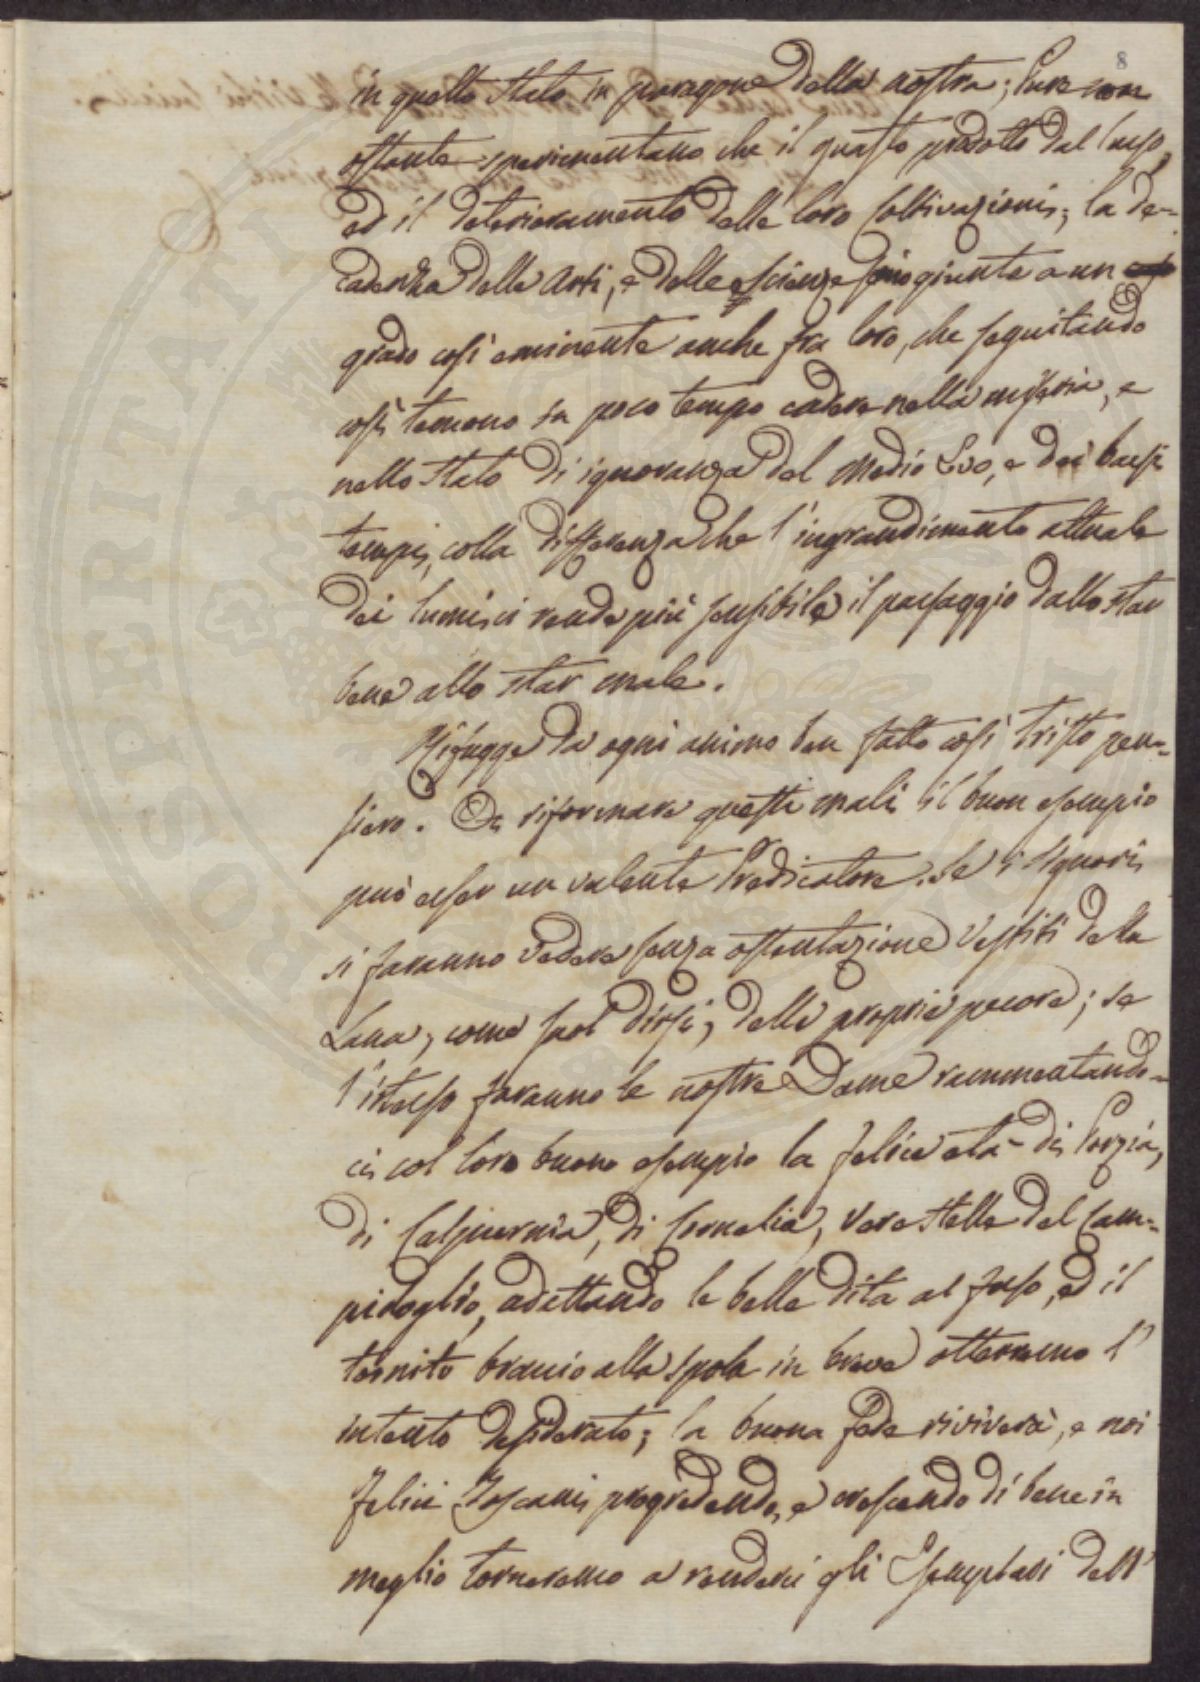 8
in quello stato in paragone della nostra; pure non
ostante sperimentano che il guasto prodotto dal lusso,
ed il deterioramento delle loro coltivazioni; la de=
cadenza delle arti, e delle scienze sino giunte a un
grado così eminente anche fra loro, che seguitando
così temono in poco tempo cadere nella miseria, e
nello stato di ignoranza del Medio Evo, e dei bassi
tempi, colla differenza che l'ingrandimento attuale
dei lumi ci rende più sensibile il passaggio dallo star
bene allo star male.
Rifugge da ogni animo ben fatto così tristo pen=
siero. Da riformare questi mali il buon esempio
può esser un valente Predicatore. Se i Signori
si faranno vedere senza ostentazione vestiti della
Lana, come suol dirsi, delle proprie pecore; se
l'istesso faranno le nostre Dame rammentando=
ci col loro buono esempio la felice età di Porzia,
di Calpurnia, di Cornelia, vere stelle del Cam=
pidoglio, adattando le belle dita al fuso, ed il
tornito braccio alla spola in breve otterremo l'
intento desiderato; la buona fede riviverà, e noi
felici Toscani progredendo, e crescendo di bene in
meglio torneremo a renderci gli Esemplari dell'